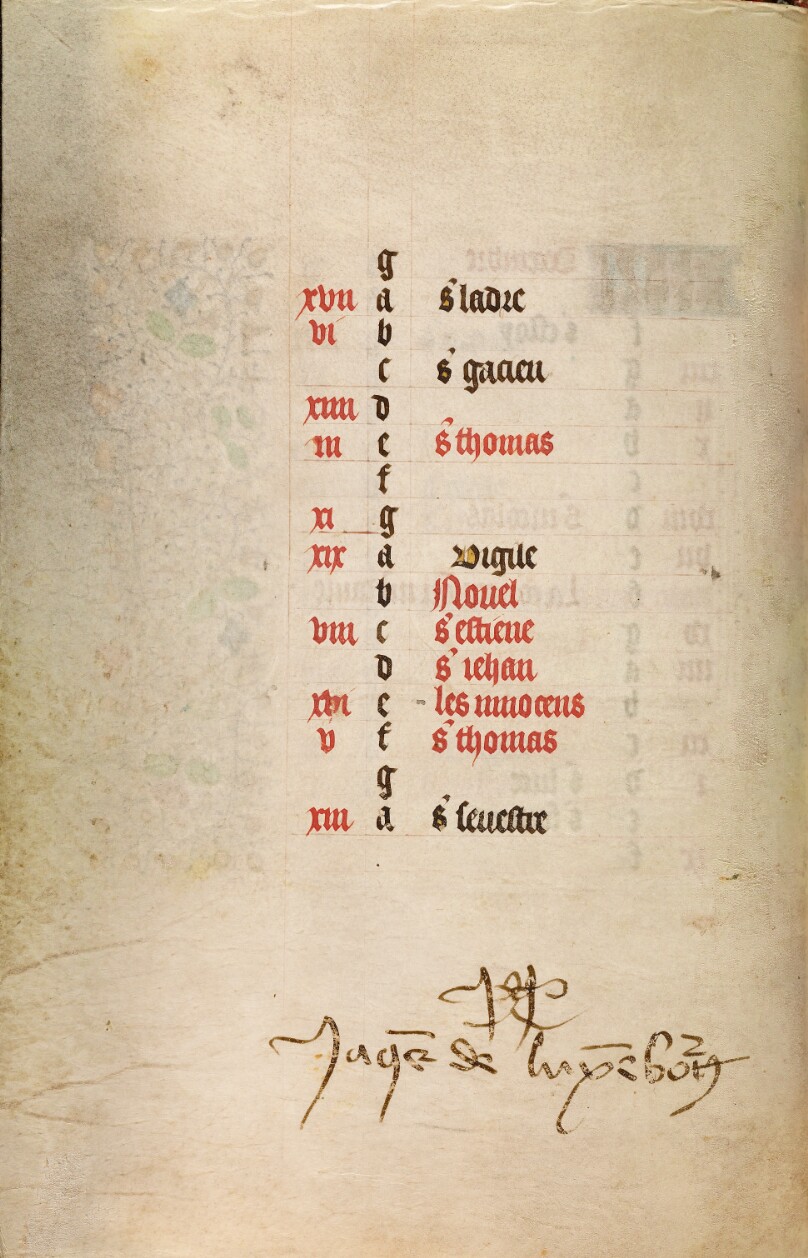 g
xvii a s̄ ladre
vi b
c s̄ gacien
xiiii d
iii e s̄ thomas
f
xi g
xix a vigile
b Nouel
viii c s̄ estiene
d s̄ iehan
xvi e les innocens
v f s̄ thomas
g
xiii a s̄ seuestre
Jaq̄s de